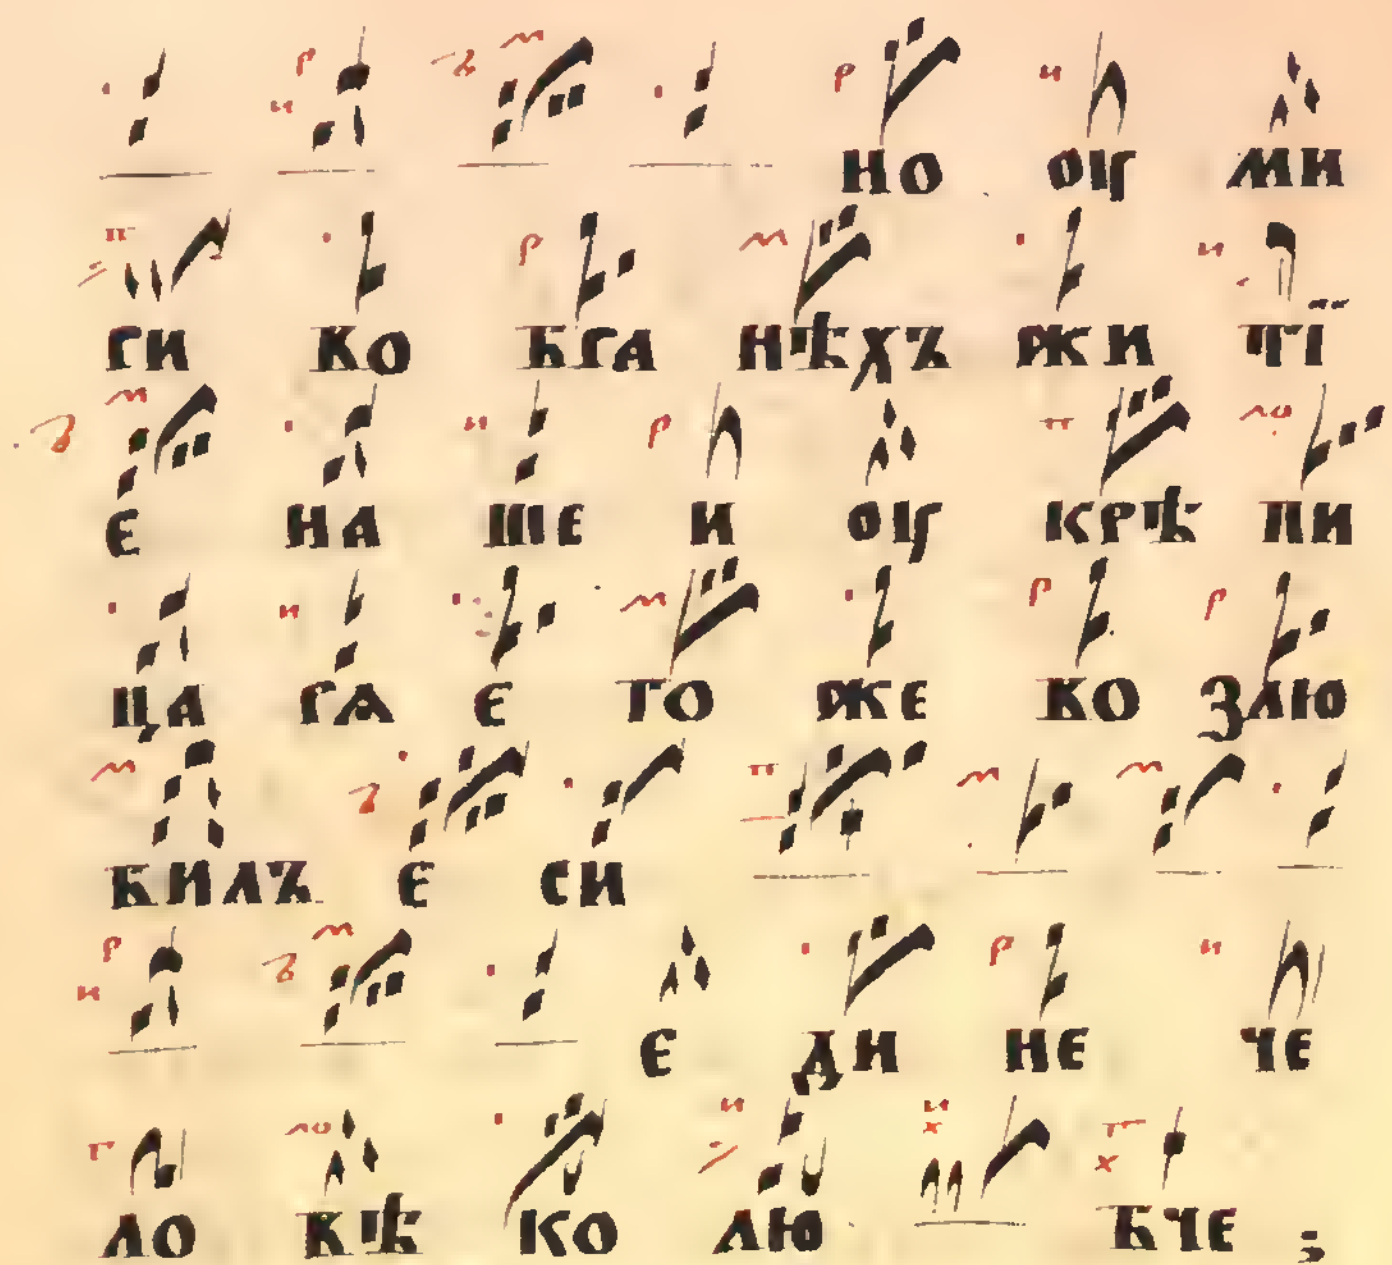 но оу ми
ги ко бга нѣхъ жи тї
е на ше и оу крѣ пи
ца гѧ е го же во злю
билъ е си
е ди не че
ло вѣ ко лю бче